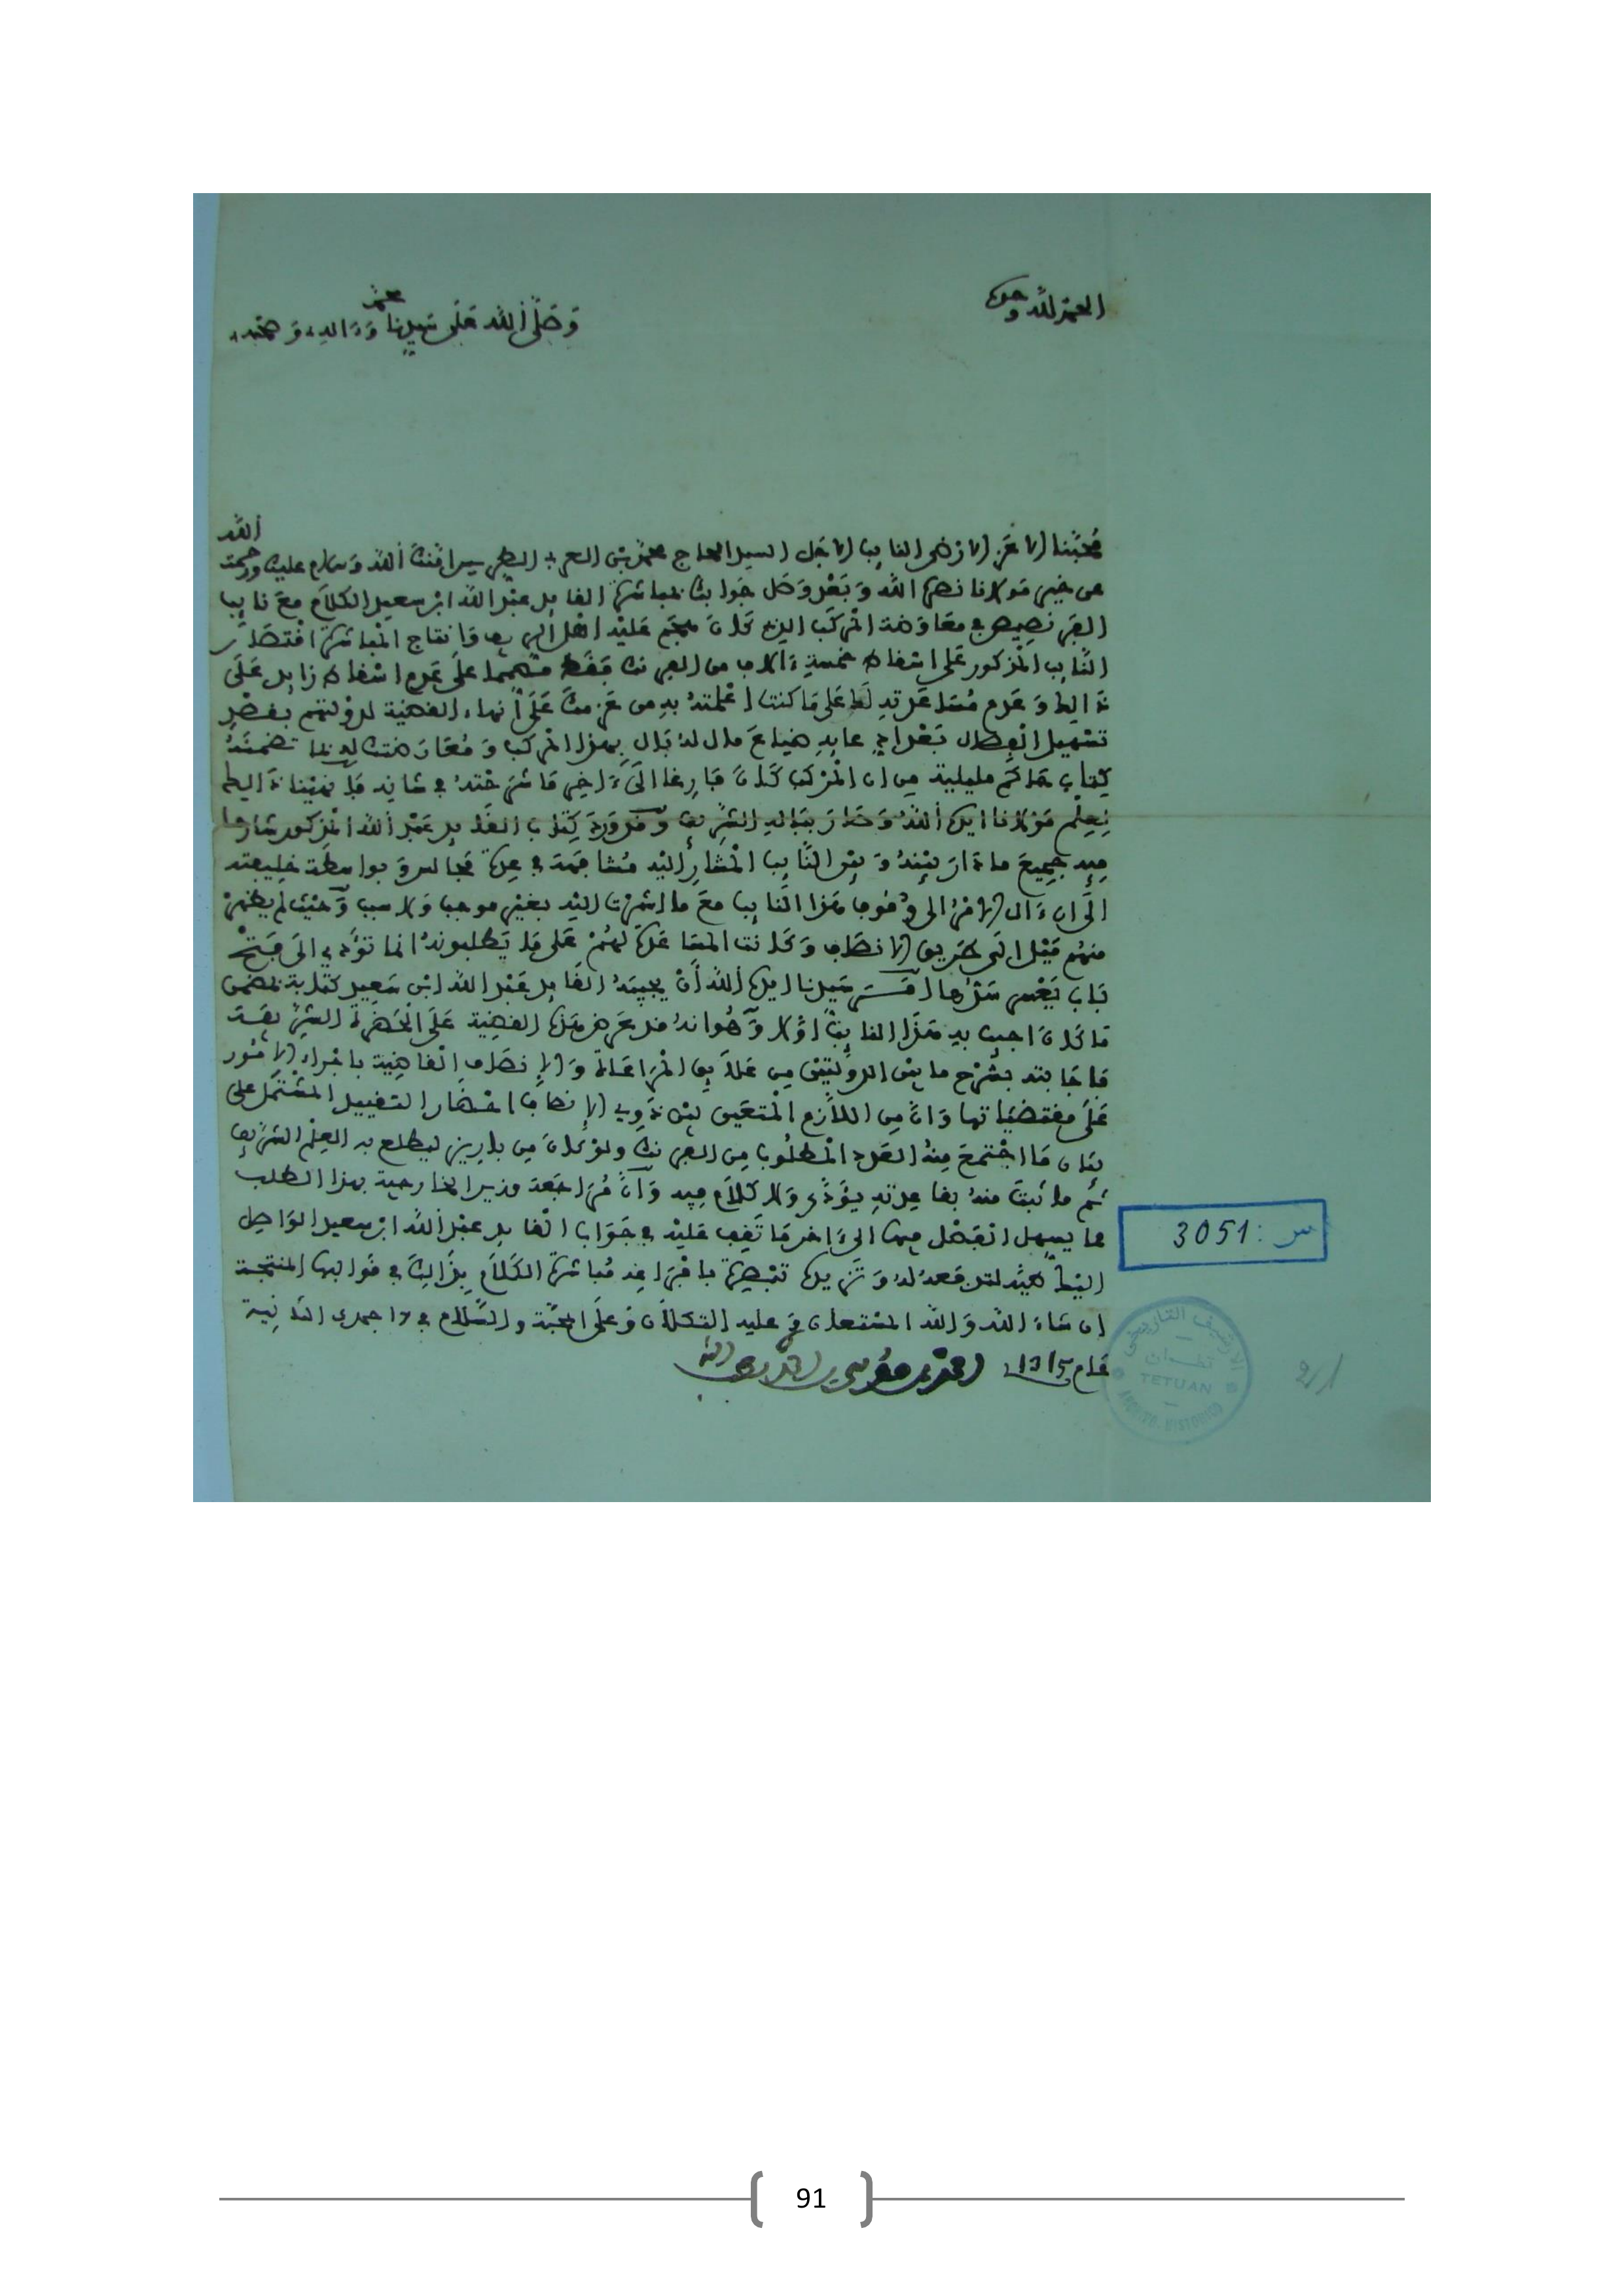 الحمد لله وحده
وصلى الله على سيدنا محمد وءاله وصحبه
محبنا الاعز الارضى النايب الاجل السيد الحاج محمد بن العربي الطريس امنك الله وسلام عليك ورحمت الله
عن خير مولانا نصره الله وبعد وصل جوابك بمباشرة القايد عبد الله ابن سعيد الكلام مع نايب
الفرنصيص في معاوضة المركب الذي كان هجم عليه اهل الريف وانتاج المباشرة اقتصار
النايب المذكور على اسقاط خمسة ءالاف من الفرنك فقط مصمما على عدم اسقاط زايد على
ذالك وعدم مساعدته لك على ما كنت اعلمته به من عزمك على انهاء القضية لدولتهم بقصد
تسهيل
كتاب حاكم مليلية من ان المركب كان فارغا الى ءاخر ما شرحته في شانه فانهينا ذالك
لعلم مولانا ايده الله وصار بباله الشريف وقد ورد كتاب القايد عبد الله المذكور شارحا
فيه جميع ما دار بينه وبين النايب المشار اليه مشافهة في عدة مجالس وبواسطة خليفته
الى ان ءال الامر الى وقوف هذا النايب مع ما اشرت اليه بغير موجب ولا سبب وحيث لم يظهر
منهم ميل الى طريق الانصاف وكانت المساعدة لهم على ما يطلبونه انما تؤدي الى فتح
باب يعسر سدها امر سيدنا ايده الله أن يجيبه القايد عبد الله ابن سعيد كتابة بمضمن
ما كان اجيب به هذا النايب اولا وهو انه قد عرض هذه القضية على الحضرة الشريفة
فاجابته بشرح ما بين الدولتين من علايق المراعاة والإنصاف القاضية باجراء الامور
على مقتضياتها وان من اللازم المتعين بين ذوي الإنصاف احضار التقييد المشتمل على
بيان ما اجتمع منه العدد المطلوب من الفرنك ولو كان من باريز ليطلع به العلم الشريف
ثم ما ثبت منه بقاعدته يؤدى ولا كلام فيه وان مراجعة وزير الخارجية بهذا الطلب
مما يسهل الفصل فيها الى ءاخر ما تقف عليه في جواب القايد عبد الله ابن سعيد الواصل
اليك لتدفعه له وتزيده تبصرة بافراغه مباشرة الكلام بذالك في قوالبها المنتجة
ان شاء الله والله المستعان وعليه التكلان وعلى المحبة والسلام في جمدى الثانية
عام 1315 احمد بن موسى بن احمد لطف الله
س : 3051
الارشيف التاريخي
تطوان
TETUAN
ARCHIVO HISTORICO
2/1
91